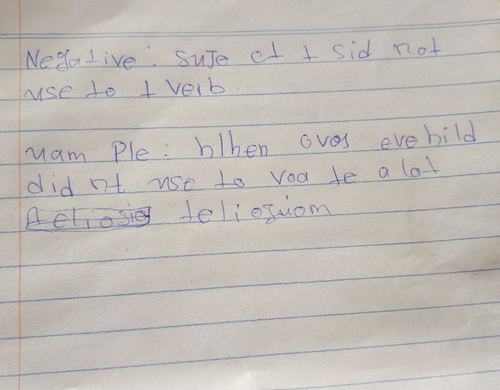 Negative: suje ct + sid not
use to + verb.
xam ple: when ovas evehild
did nt use to voa te a lot
teliosig teliozuiom